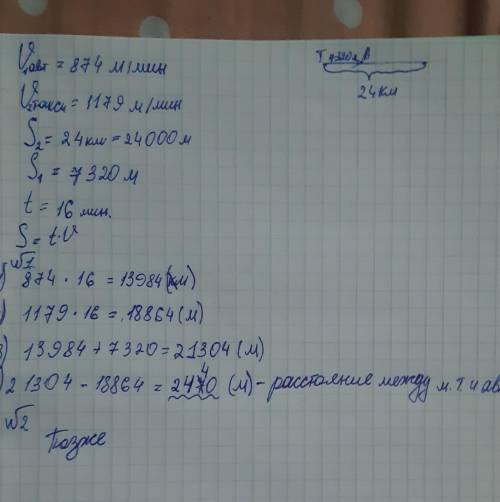 V₁авт = 874 м/мин
V₂такси = 1179 м/мин
S₂ = 24 км = 24000 м
S₁ = 7320 м
t = 16 мин.
S = t·V
№1
) 874 · 16 = 13984 (м)
) 1179 · 16 = 18864 (м)
3) 13984 + 7320 = 21304 (м)
) 21304 - 18864 = 2440 (м) - расстояние между м. т. и ав
№2
Позже
Т 7320м А
24 км